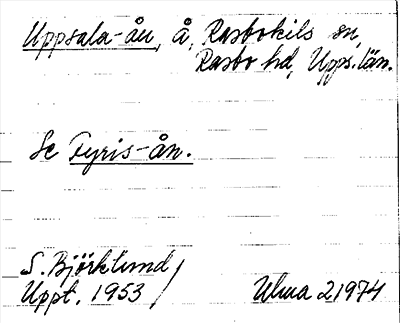 Uppsala-ån, å, Rasbokils sn,
Rasbo hd, Upps. län.
Se Fyris-ån.
S. Björklund /
Uppt. 1953
Ulma 21974